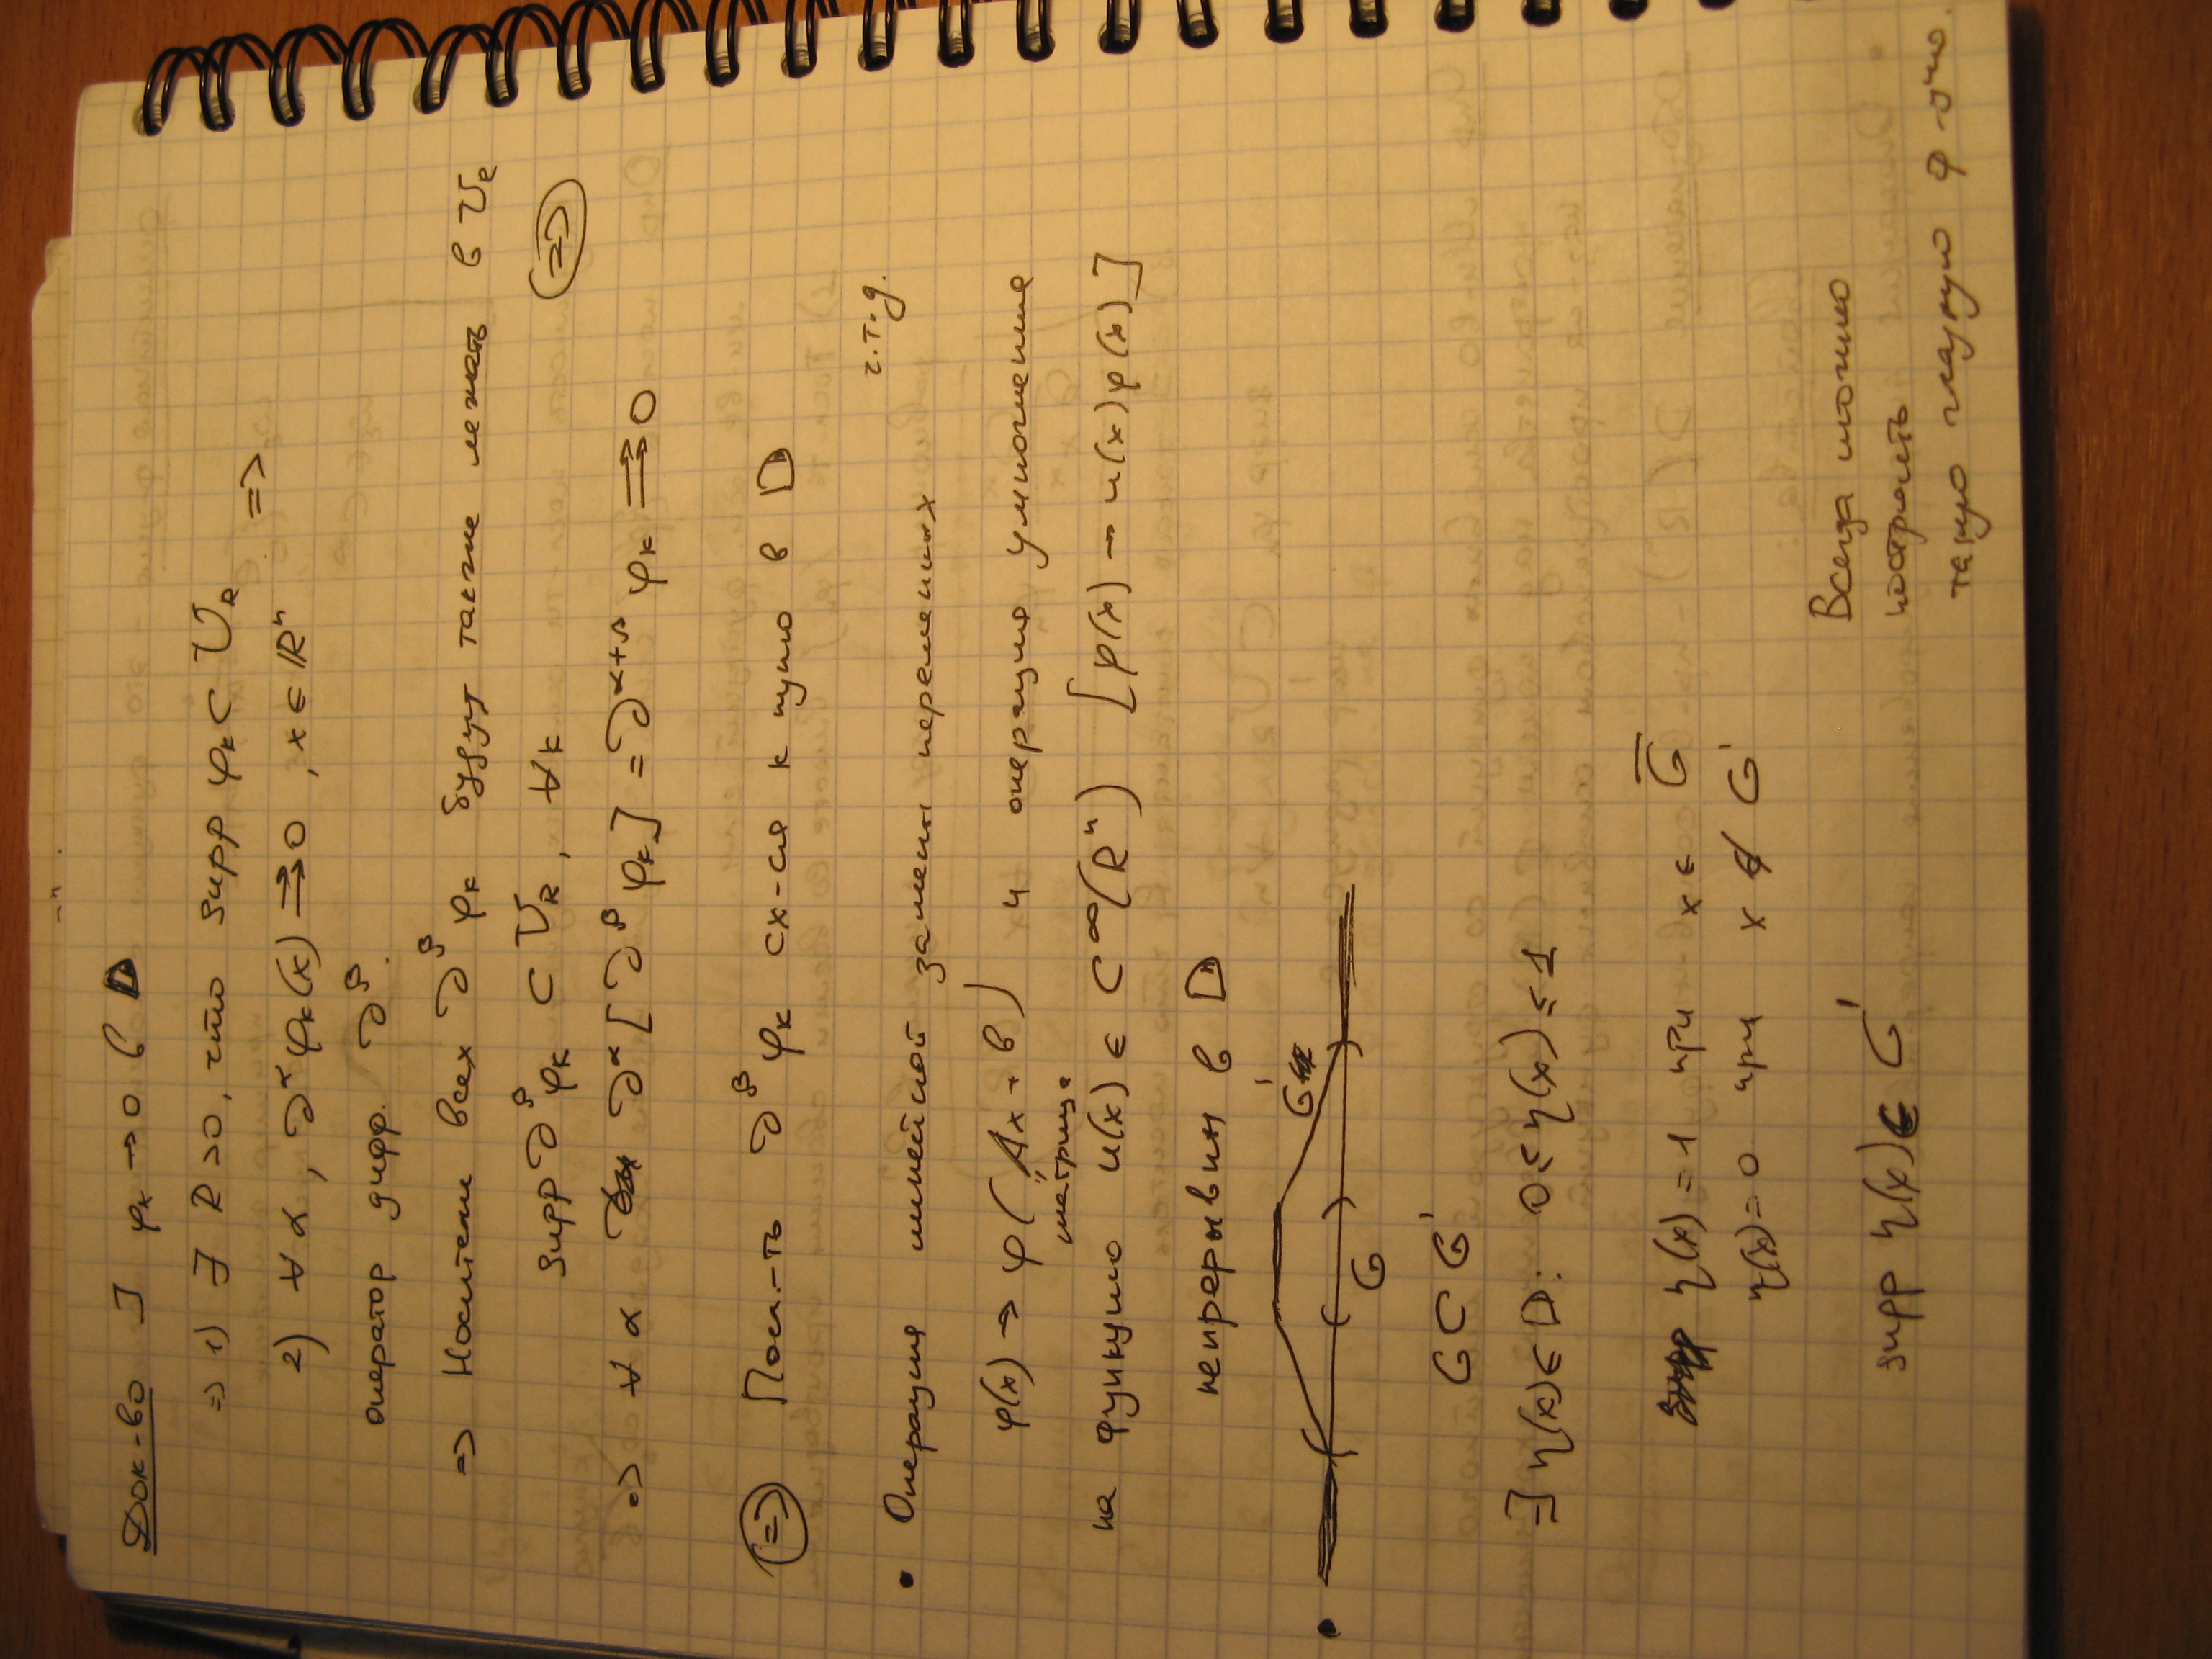 Док-во ] φₖ → 0 в D
=> 1) ∃ R>0, что supp φₖ ⊂ U_R
2) ∀ α, ∂^α φₖ(x) ⇉ 0, x ∈ ℝⁿ =>
оператор дифф. ∂^β.
=> Носители всех ∂^β φₖ будут также лежать в U_R
supp ∂^β φₖ ⊂ U_R, ∀k (=>)
=> ∀ α ∂^α [∂^β φₖ] = ∂^{α+β} φₖ ⇉ 0
(=>) Посл-ть ∂^β φₖ сх-ся к нулю в D
ч.т.д.
• Операция линейной замены переменных
φ(x) → φ(Ax + b) и операция умножения
матрица
на функцию u(x) ∈ C^∞(ℝⁿ) [φ(x) → u(x)φ(x)]
непрерывны в D
• G G'
G ⊂ G'
∃ η(x) ∈ D: 0 ≤ η(x) ≤ 1
η(x) = 1 при x ∈ G̅
η(x) = 0 при x ∉ G'
supp η(x) ⊂ G'
Всегда можно
построить
такую гладкую ф-цию.